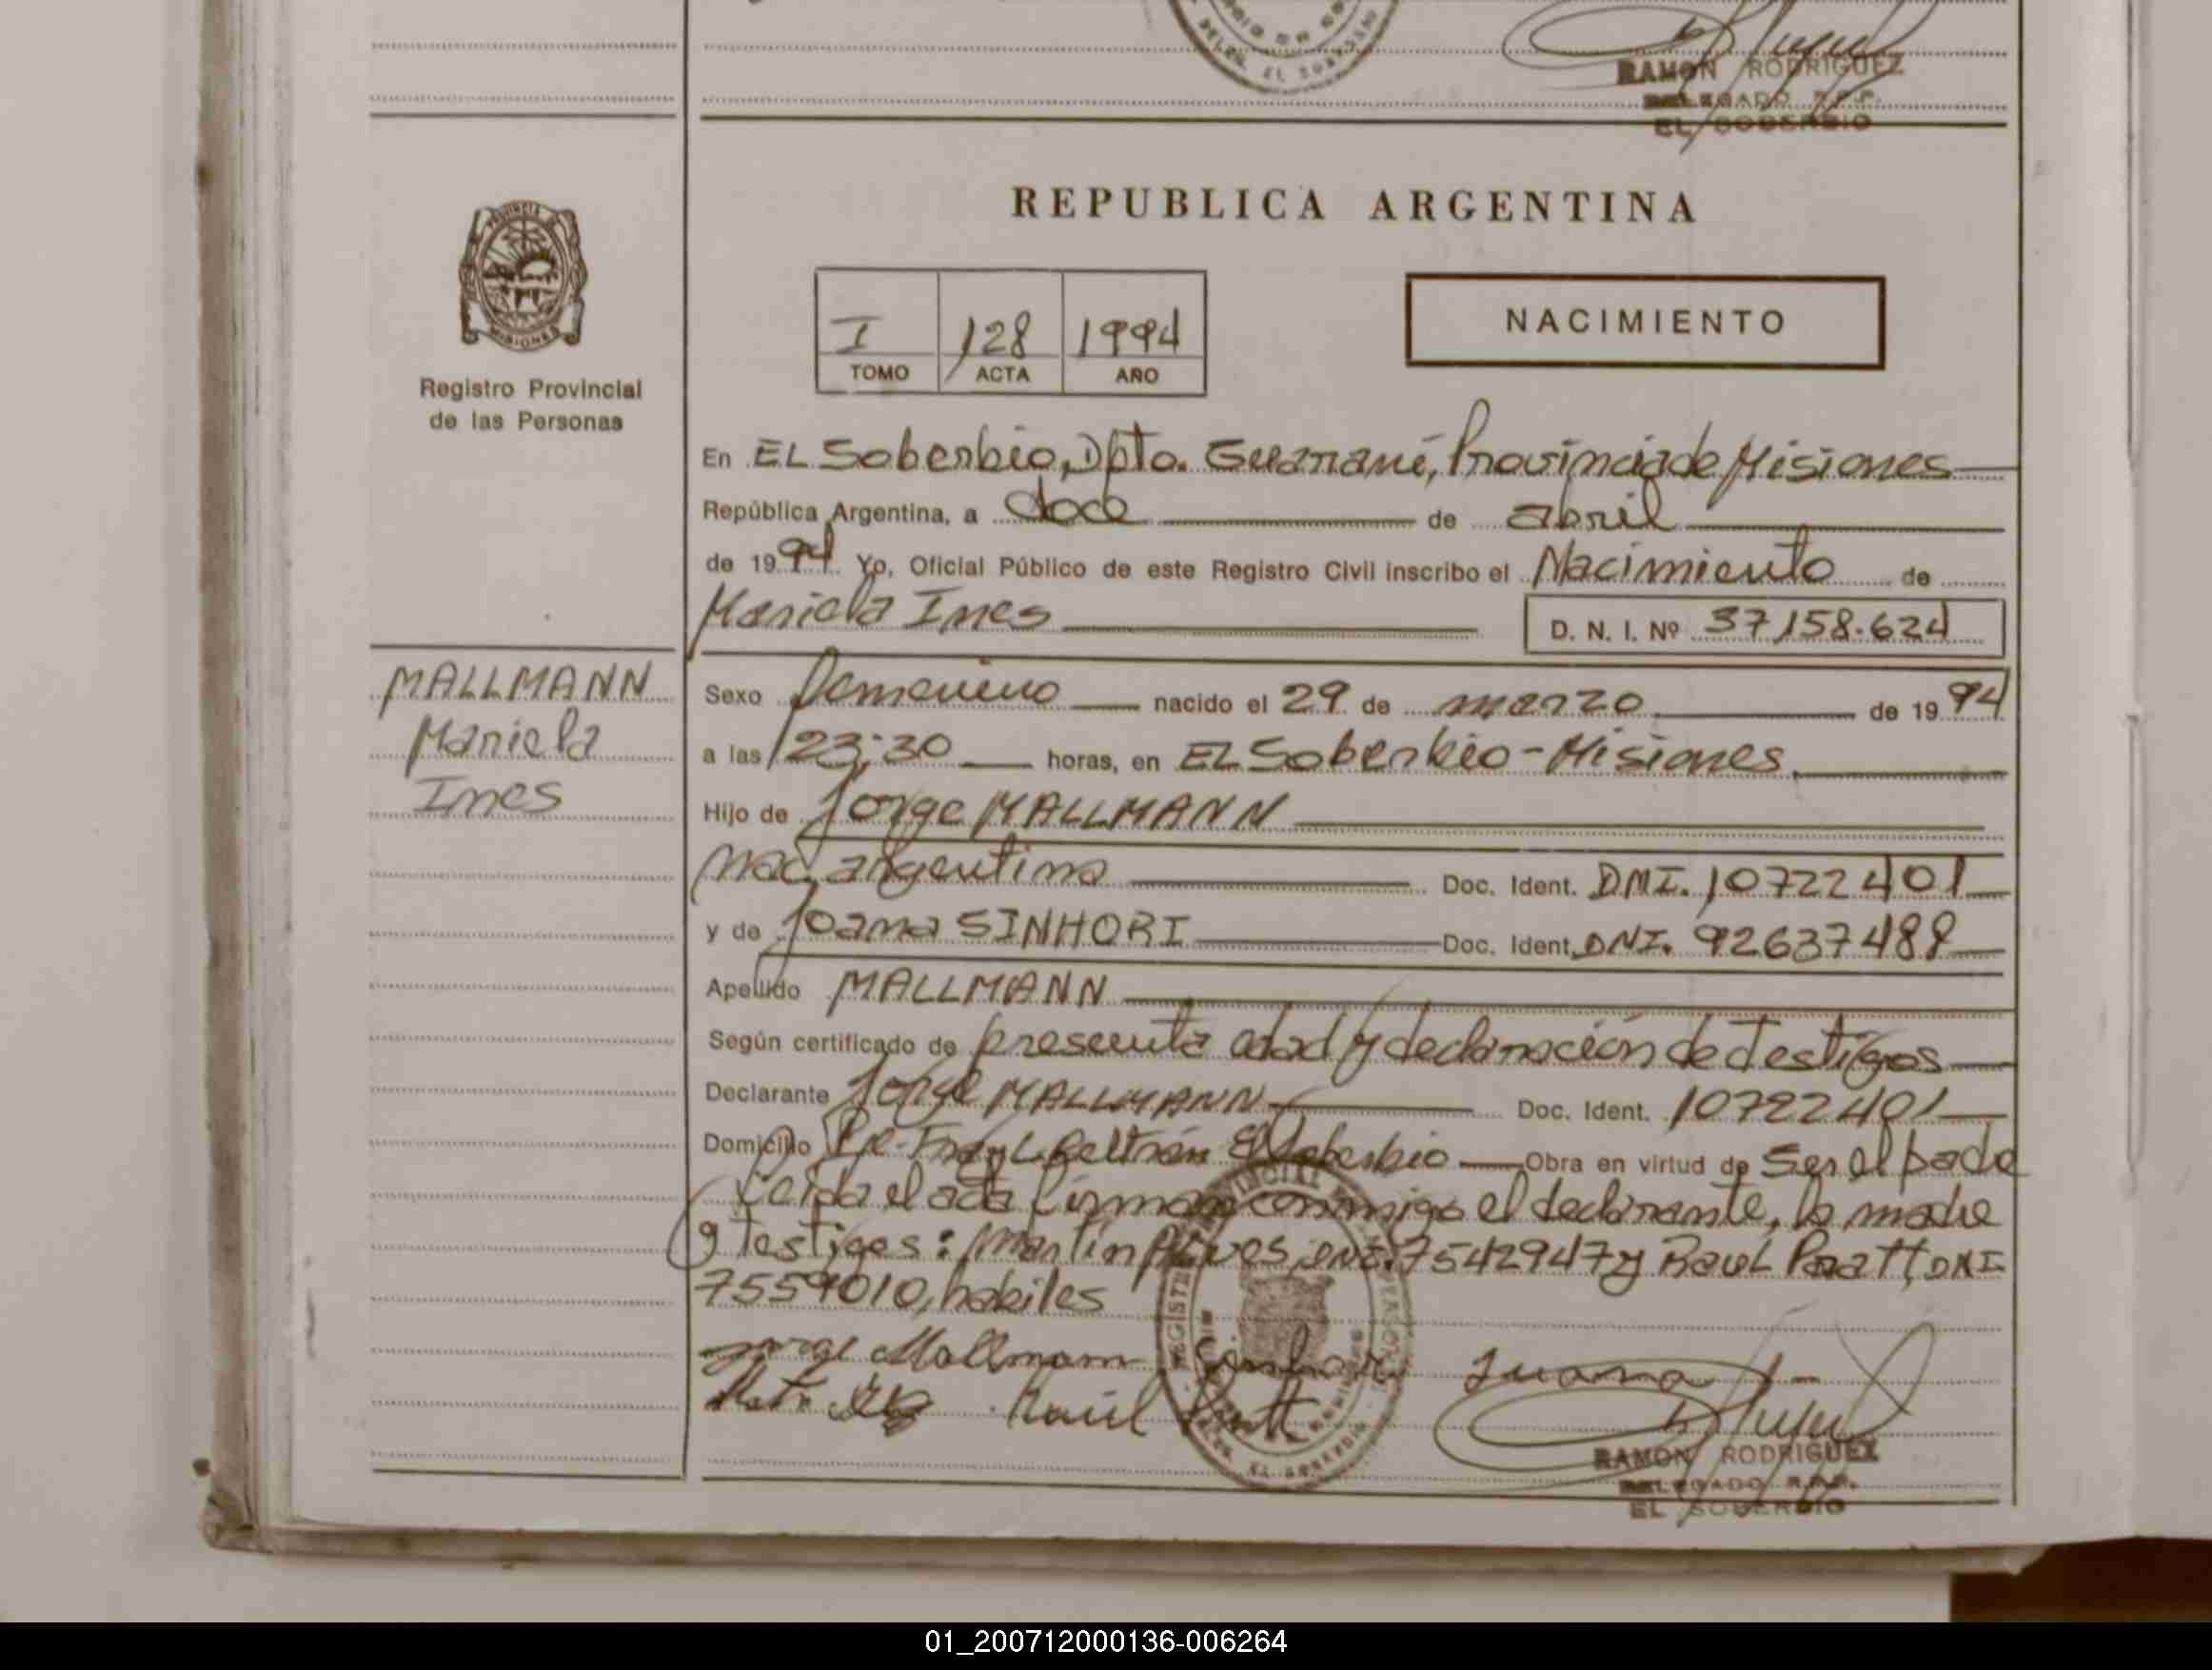 RAMON RODRIGUEZ
DELEGADO R.P.P.
EL SOBERBIO
REPUBLICA ARGENTINA
PROVINCIA DE
MISIONES
Registro Provincial
de las Personas
I 128 1994
TOMO ACTA AÑO
NACIMIENTO
En EL Soberbio, Dpto. Guaraní, Provincia de Misiones
República Argentina, a doce de abril
de 1994 Yo, Oficial Público de este Registro Civil inscribo el Nacimiento de
Mariela Ines
D. N. I. Nº 37,158.624
MALLMANN
Mariela
Ines
Sexo Femenino nacido el 29 de marzo de 1994
a las 23:30 horas, en EL Soberbio - Misiones
Hijo de Jorge MALLMANN
Nac. argentina Doc. Ident. DNI. 10722401
y de Joana SINHORI Doc. Ident. DNI. 92637488
Apellido MALLMANN
Según certificado de presunta edad y declaración de testigos
Declarante Jorge MALLMANN Doc. Ident. 10722401
Domicilio Fray L. Beltrán El Soberbio Obra en virtud de Ser el padre
Leida el acta firman conmigo el declarante, la madre
y testigos: Martin Alves, DNI. 7542947 y Raul Pratt, DNI
7559010, habiles
Jorge Mallmann Juana
Raúl Pratt
RAMON RODRIGUEZ
DELEGADO R.P.P.
EL SOBERBIO
01_200712000136-006264